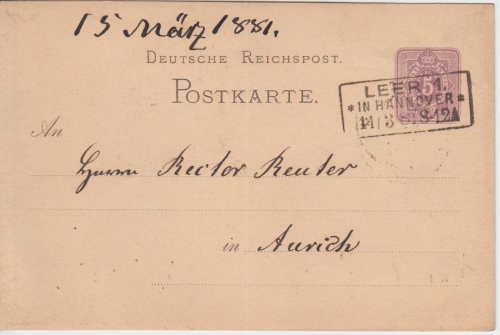 15 März 1881.
DEUTSCHE REICHSPOST.
POSTKARTE.
LEER 1.
* IN HANNOVER *
14/3 81 8-12A
An
Herrn Rector Reuter
in Aurich